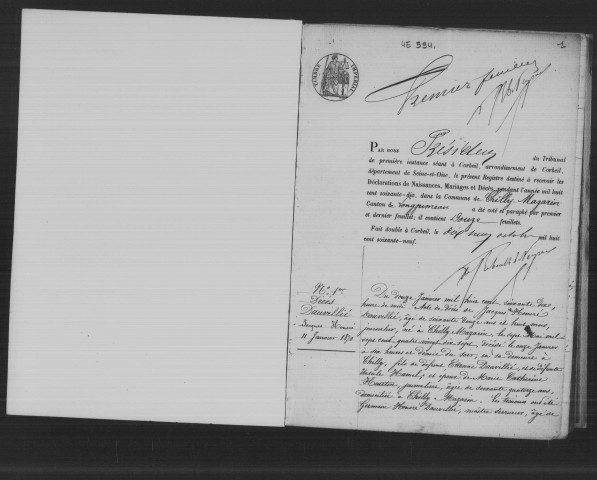 4E 594.
1
TIMBRE IMPÉRIAL
Premier feuillet
PAR NOUS Président du Tribunal
de première instance séant à Corbeil, arrondissement de Corbeil,
département de Seine-et-Oise, le présent Registre destiné à recevoir les
Déclarations de Naissances, Mariages et Décès, pendant l'année mil huit
cent soixante-dix, dans la Commune de Chilly-Mazarin
Canton de Longjumeau a été coté et paraphé par premier
et dernier feuillet; il contient Douze feuillets.
Fait double à Corbeil, le dix neuf octobre mil huit
cent soixante-neuf.
No 1er
Décès
Dauvillié
Jacques Honoré
11 Janvier 1870
Du douze Janvier mil huit cent soixante dix,
heure de midi. Acte de décès de Jacques Honoré
Dauvillié, âgé de soixante douze ans et huit mois,
journalier, né à Chilly-Mazarin, le sept Mai mil
sept cent quatre vingt dix sept, décédé le onze Janvier
à six heures et demie du soir, en sa demeure à
Chilly, fils de défunt Etienne Dauvillié, et de défunte
Ursule Hamel; et époux de Marie Catherine
Hourton, journalière, âgée de soixante quatorze ans,
domiciliée à Chilly-Mazarin. Les témoins ont été
Germain Honoré Dauvillié, maître serrurier, âgé de